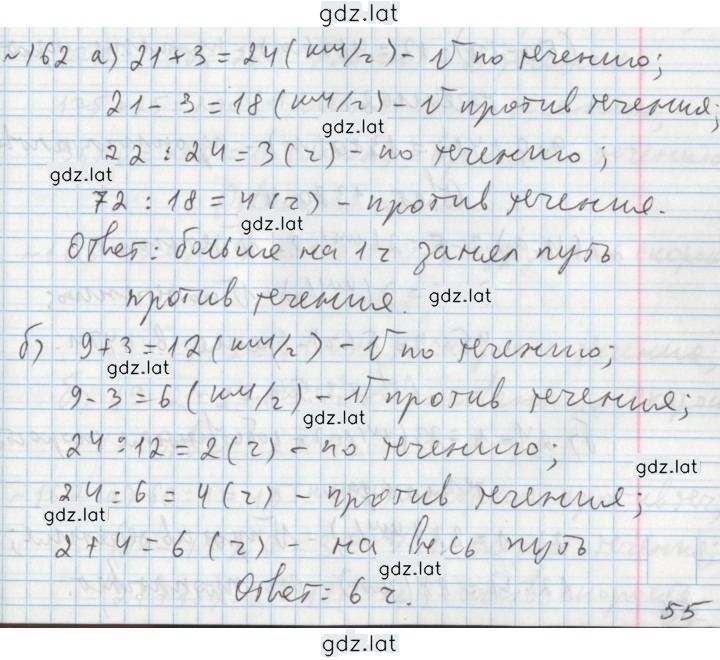 gdz.lat
№162 а) 21+3=24(км/ч) - V по течению;
21-3=18(км/ч) - V против течения;
gdz.lat
22:24=3(ч) - по течению;
gdz.lat
72:18=4(ч) - против течения.
gdz.lat
Ответ: больше на 1ч занял путь
против течения.
gdz.lat
б) 9+3=12(км/ч) - V по течению;
gdz.lat
9-3=6(км/ч) - V против течения;
gdz.lat
24:12=2(ч) - по течению;
gdz.lat
24:6=4(ч) - против течения;
gdz.lat
2+4=6(ч) - на весь путь
gdz.lat
Ответ: 6ч.
55
gdz.lat